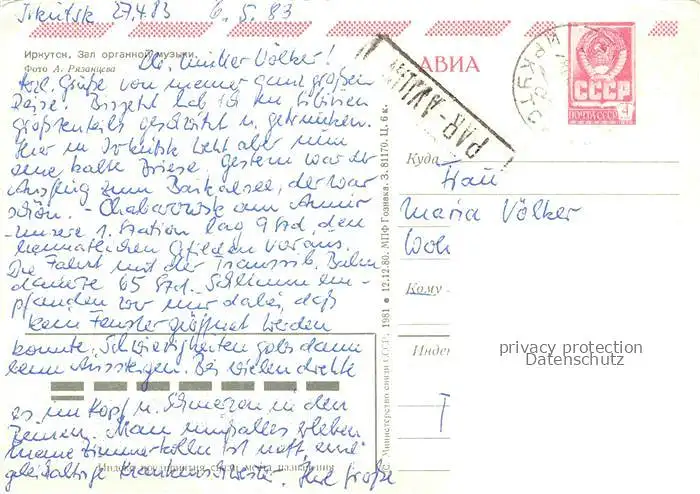 Irkutsk 27.4.83 6.5.83
Иркутск. Зал органной музыки.
Фото А. Рязанцева
АВИА
PAR AVION
ИРКУТСК
СССР
ПОЧТА СССР
4к
Lb. Mutter Völker!
Herzl. Grüße von meiner ganz großen
Reise. Bisjetzt hab ich in Sibirien
großenteils geschwitzt u. getrunken.
Hier in Irkutsk weht aber nun
eine kalte Briese, gestern war der
Ausflug zum Baikalsee, der war
schön. - Chabarowsk am Amur
- unsere 1. Station lag 9 Std. den
heimatlichen Gefilden voraus.
Die Fahrt mit der Transsib. Bahn
dauerte 65 Std. Schlimm em-
pfanden wir nur dabei, daß
kein Fenster geöffnet werden
konnte. Schwierigkeiten gabs dann
beim Aussteigen. Bei vielen drehte
es im Kopf u. Schmerzen in den
Beinen. Man muß alles erleben
Meine Zimmerkollin ist nett, eine
gleichaltrige Krankenschwester. Ihre große
Индекс предприятия связи места назначения
© Министерство связи СССР, 1981 12.12.80. МПФ Гознака. З. 81170. Ц. 6 к.
Куда
Frau
Maria Völker
Кому
Индекс
privacy protection
Datenschutz